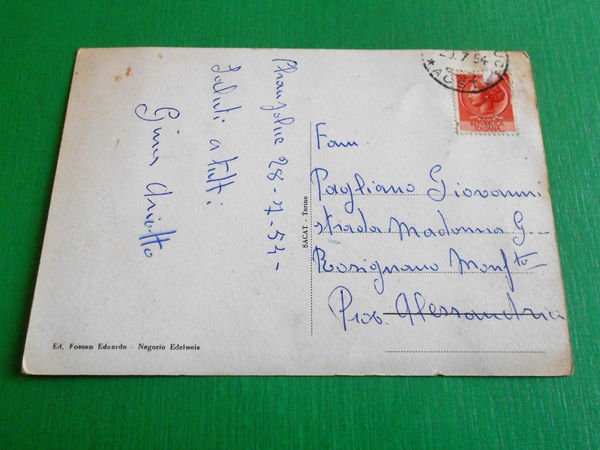 28-7-54-
Saluti a tutti
Gina
Fam.
Pagliano Giovanni
strada Madonna G.
Rosignano Monf.to
Prov. Alessandria
SACAT - Torino
Ed. Fosson Edoardo - Negozio Edelweis
7 54